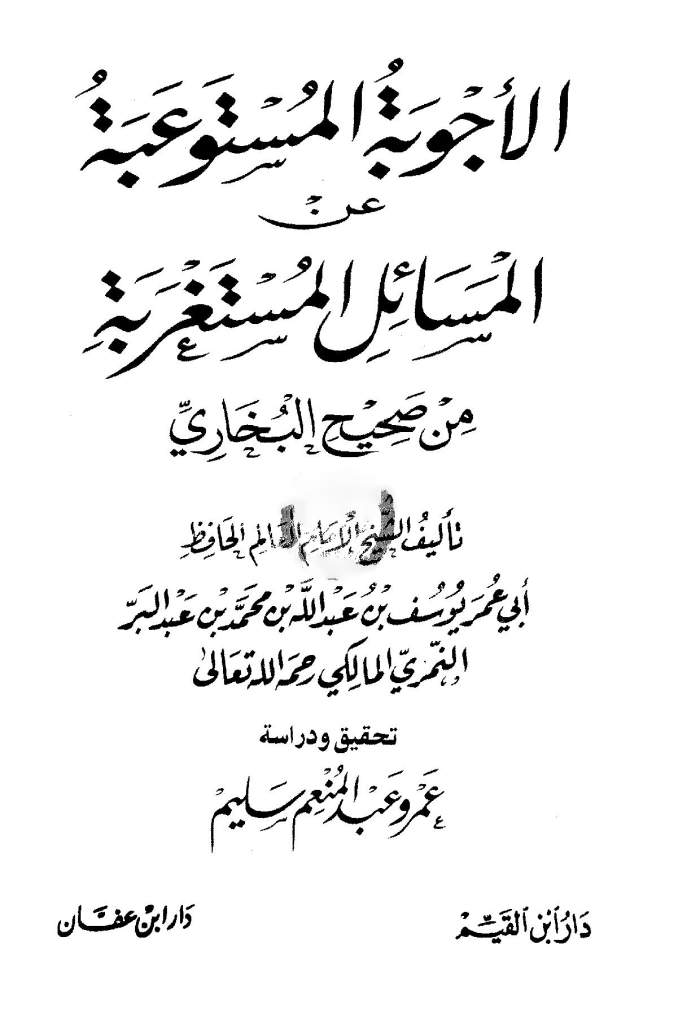 الأَجْوِبَةُ المُسْتَوعَبَةُ
عَنْ
المَسَائِلِ المُسْتَغْرَبَةِ
مِنْ صَحِيْحِ البُخَارِيِّ
تأليفُ الشَّيخ الإمام العَالم الحَافِظِ
أبي عُمَر يُوسُف بْنُ عَبْد اللَّه بْن محمَّد بْن عَبْد البَرِّ
النَّمَريّ المالِكي رحمَه الله تعَالى
تحقيق ودراسة
عَمْرو عَبْد المُنْعِم سَليم
دَارُ ابْنِ القَيِّمْ
دَار ابنْ عفَّان